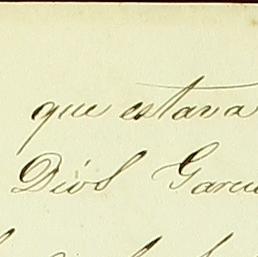 que estava
Diós Garci